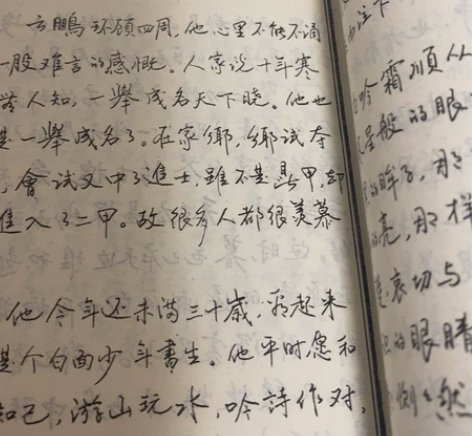 云鵬环顾四周,他心里不能不涌
一股难言的感慨。人家说十年寒
人知,一舉成名天下晓。他也
是一舉成名了。在家鄉,鄉試夺
,會試又中了進士,雖不是鼎甲,却
進入了二甲。故很多人都很羡慕
他今年还未满三十歲,看起来
是个白面少年書生。他平时和
知己,游山玩水,吟詩作对,
吟霜順从
星般的眼
的眸子,那
亮,那样
哀切与
的眼睛
然